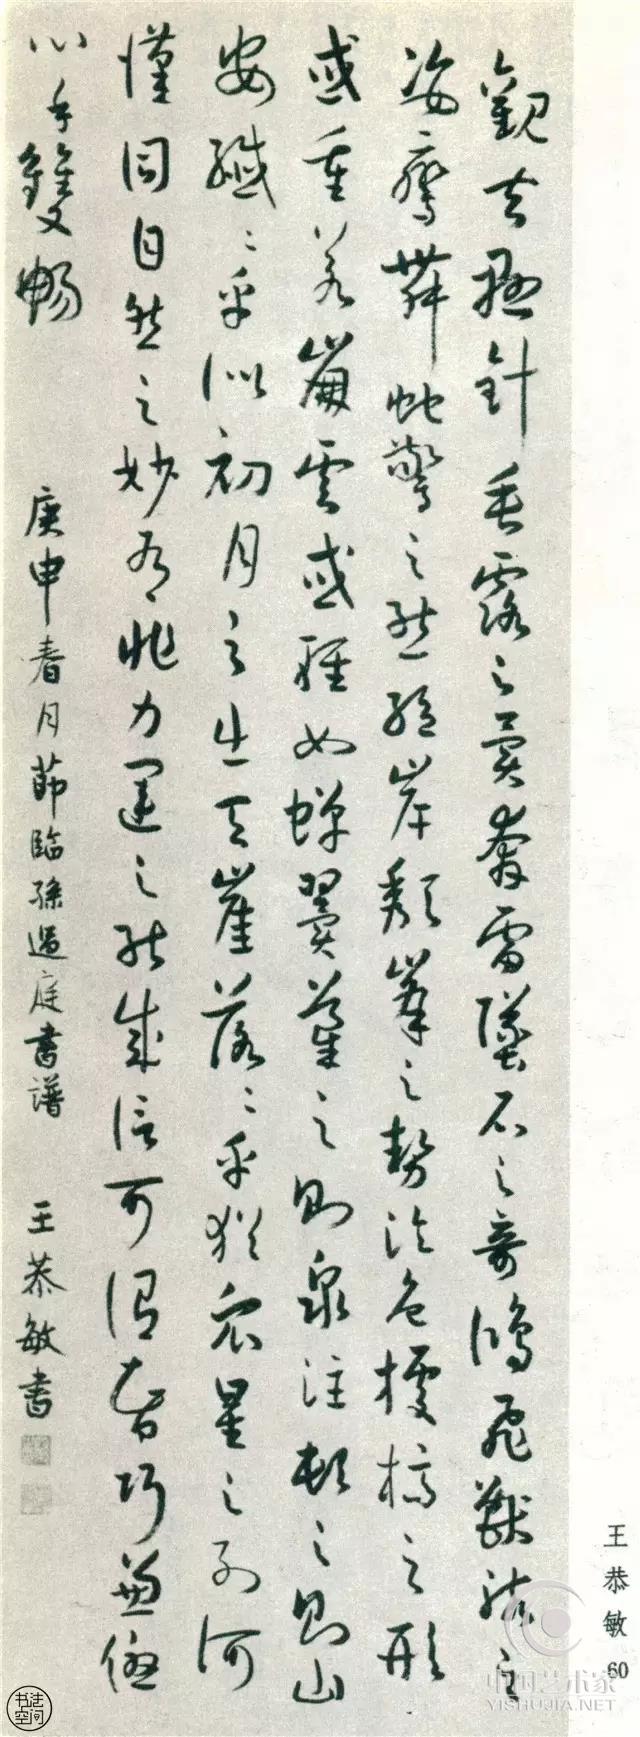 觀夫懸針垂露之異奔雷墜石之奇鴻飛獸駭之
姿鸞舞蛇驚之態絕岸頹峯之勢臨危據槁之形
或重若崩雲或輕如蟬翼導之則泉注頓之則山
安纖〻乎似初月之出天崖落〻乎猶眾星之列河
漢同自然之妙有非力運之能成信可謂智巧兼優
心手雙暢 庚申春月節臨孫過庭書譜 王恭敏書
王恭敏 60
中国艺术家
YISHUJIA.NET
书法空间